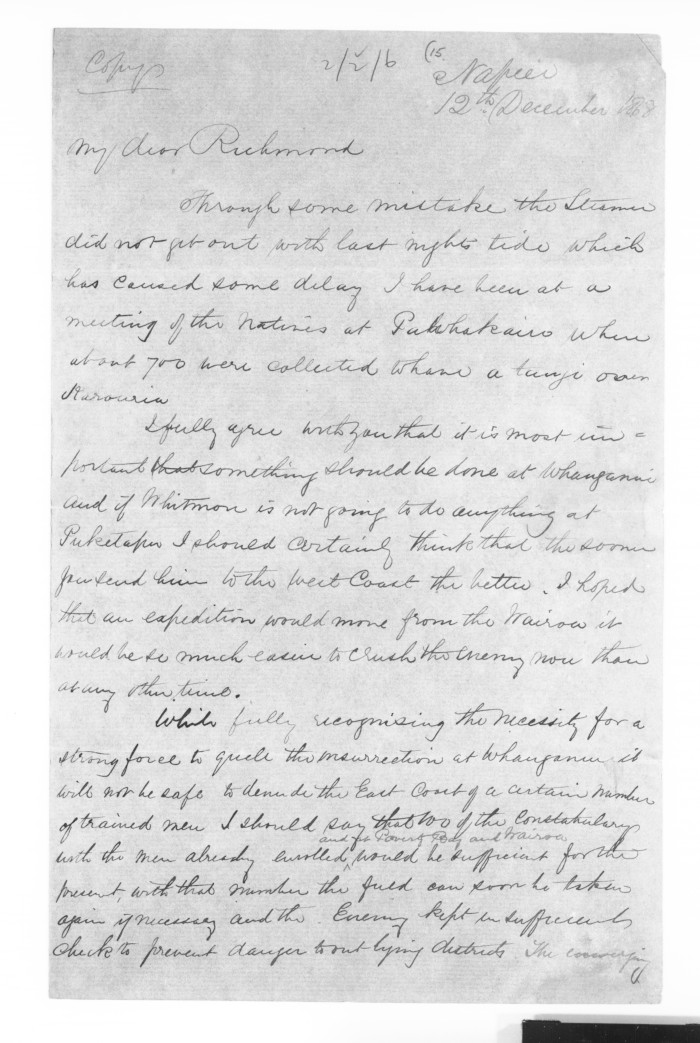 Copy
2/2/6 (15
Napier
12th December 1868
My dear Richmond
Through some mistake the Steamer
did not get out with last nights tide which
has caused some delay I have been at a
meeting of the Natives at Pakowhai where
about 700 were collected to have a tangi over
Karauria
I fully agree with you that it is most im=
portant that something should be done at Whanganui
and if Whitmore is not going to do anything at
Puketapu I should certainly think that the sooner
you send him to the West Coast the better. I hoped
that an expedition would move from the Wairoa it
would be so much easier to crush the enemy now than
at any other time.
While fully recognising the necessity for a
strong force to quell the insurrection at Whanganui it
will not be safe to denude the East Coast of a certain number
of trained men I should say that 100 of the Constabulary
and at Poverty Bay and Wairoa
with the men already enrolled, would be sufficient for the
present, with that number the field can soon be taken
again if necessary and the Enemy kept in sufficient
check to prevent danger to out lying districts. The